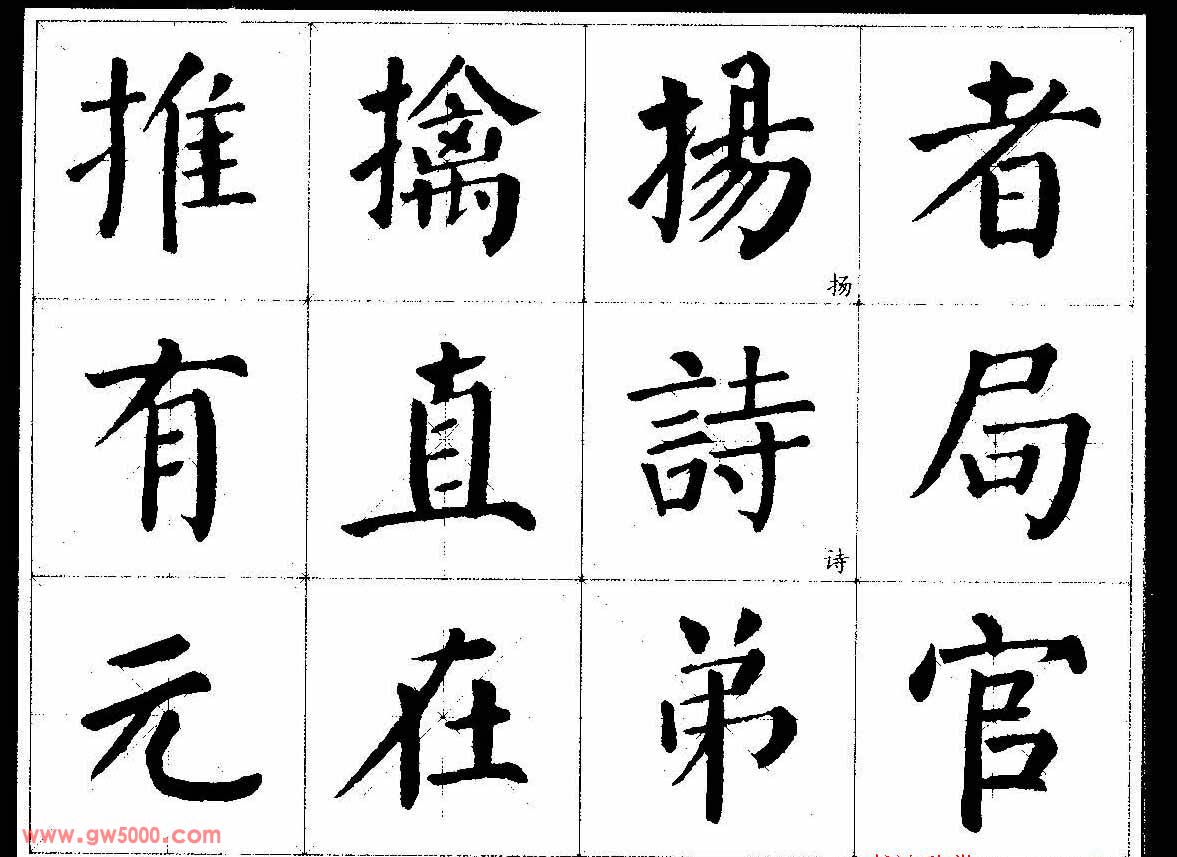 推 擒 揚 者
扬
有 直 詩 局
诗
元 在 弟 官
www.gw5000.com